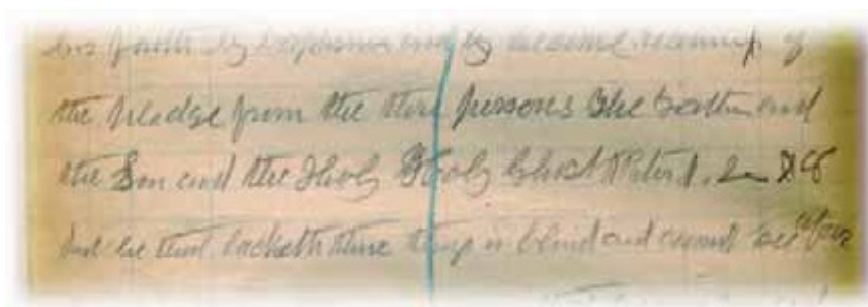 his faith by and by become of
the pledge from the three persons the Father and
the Son and the Holy Holy Ghost
but he that lacketh these things is blind and cannot see afar